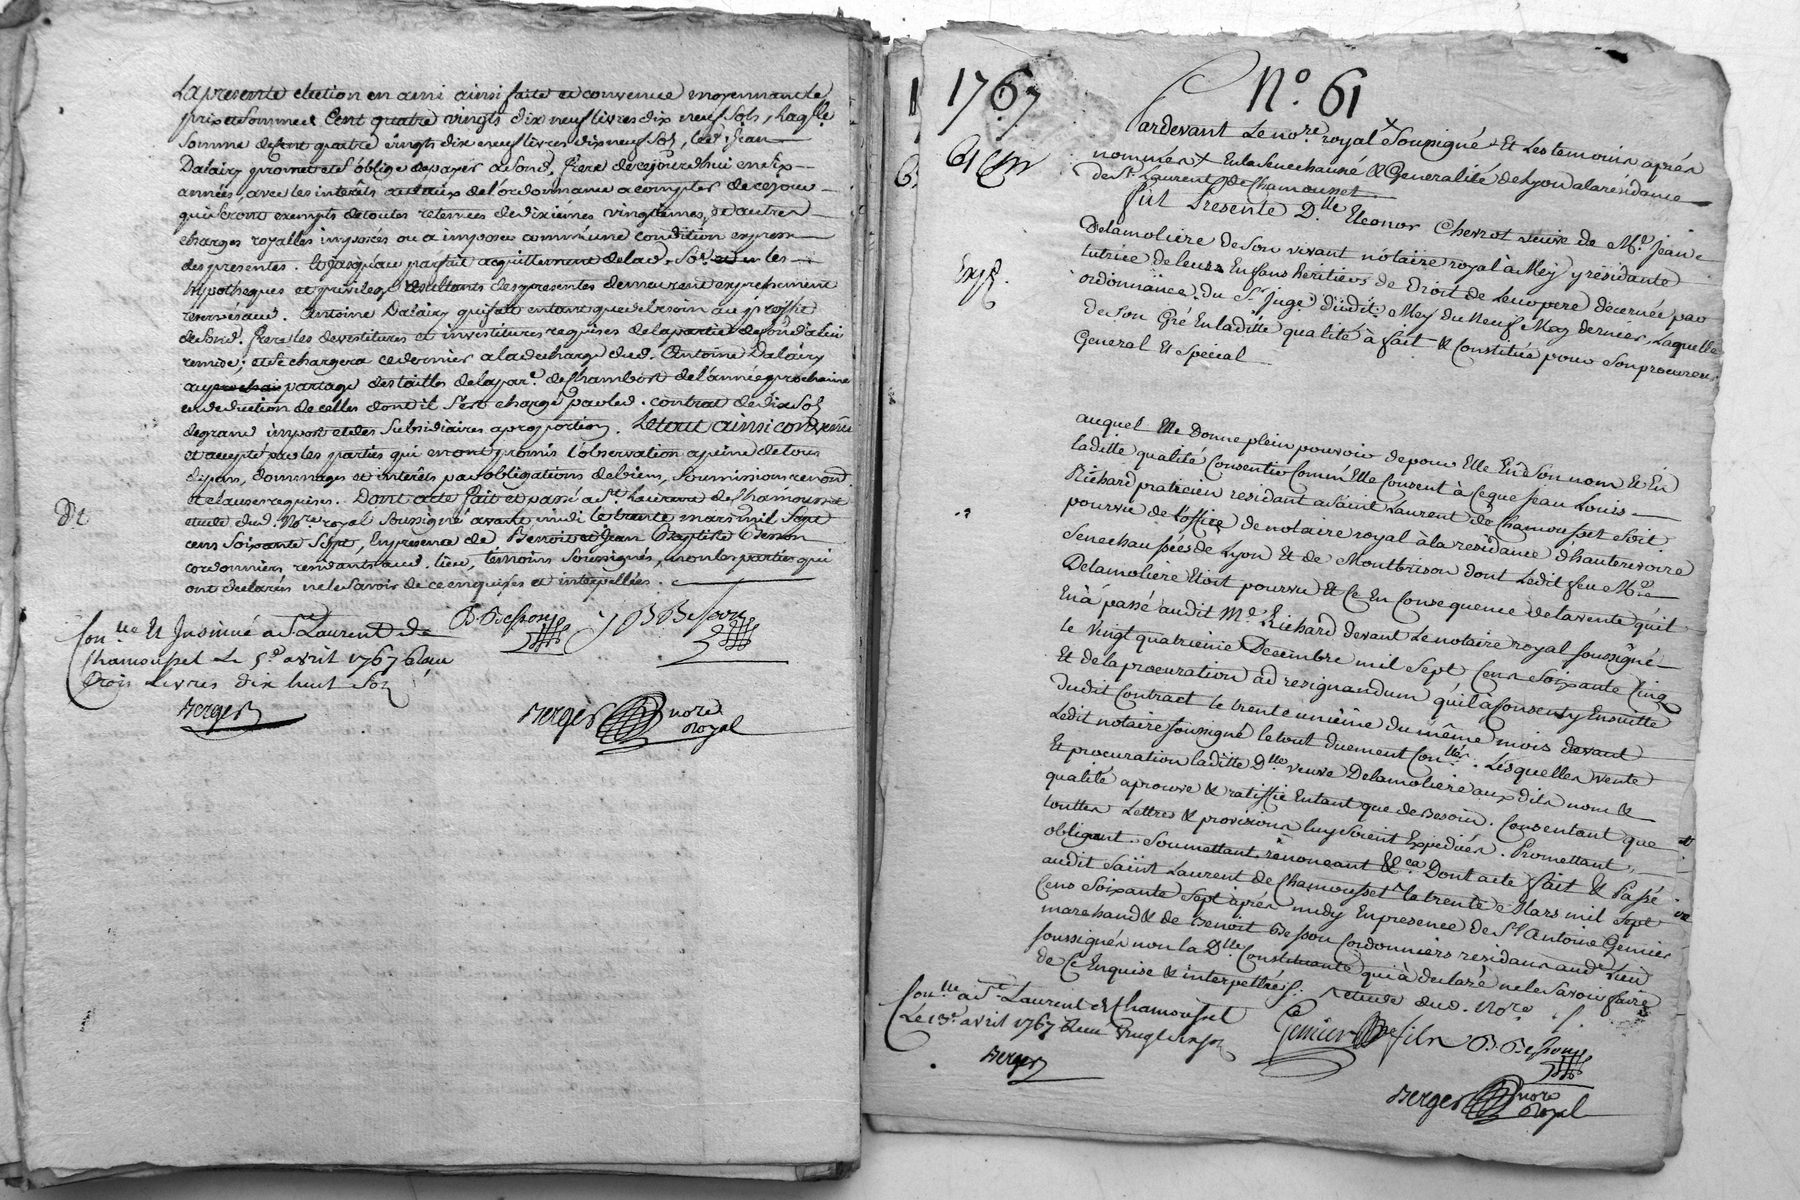 La presente election en ami ainsi faite et convenue moyennant le
prix et somme de Cent quatre vingts dix neuf livres dix neuf sols, laq.lle
somme de Cent quatre vingts dix neuf livres dix neuf sols, led. Jean
Dalairy promet et s'oblige de payer a sond. frere de ce jourdhui en six
années, avec les interêts au taux de l'ordonnance a compter de ce jour
qui seront exempts de toutes retenues de dixiémes vingtiemes, et autres
charges royalles imposées ou a imposer comme une condition expresse
des presentes. Et jusqu'au parfait acquittement de lad. so.e les
hypotheques et privilege resultants des presentes demeurent expressement
reservés aud. Antoine Dalairy qui fait entant que de besoin au proffit
de sond. frere les devestitures et investitures requises de la partie de fond a lui
remise; et se chargera ce dernier a la decharge dud. Antoine Dalairy
au prochain partage des tailles de la par.e de Chambost de l'année prochaine
en deduction de celles dont il s'est chargé par led. contrat de dix sols
de grand impost et des subsidiaires a proportion. Le tout ainsi convenu
et accepté par les parties qui en ont promis l'observation a peine de tous
dépens, dommages et interêts par obligations de biens, soumissions renon.
et clauses requises. Dont acte fait et passé a St. Laurent de Chamousset
Dt
etude dud. No.re royal soussigné avant midi le trente mars mil sept
cens soixante sept, En presence de Benoit et Jean Baptiste Besson
cordonniers residants aud. lieu, témoins soussignés, non les parties qui
ont declarés ne le savoir de ce enquises et interpellées.
Con.lle Et Insinué a St Laurent de
Chamousset Le 5e avril 1767 Recu
trois Livres dix huit sols
Berger
B. Besson J B Besson
Berger nore
Royal
1767 No. 61
61
Pardevant Le no.re royal Soussigné Et Les temoins aprés
nommés En la Senechaussée & Generalité de Lyon a la residance
de St. Laurent de Chamousset
fut Presente D.lle Eleonor Chevrot veuve de M.e Jean
Delamoliere de son vivant nótaire royal à Meÿ y residante
Exp.
tutrice de leurs Enfans heritiers de Droit de Leur pere décernée par
ordonnance du Sr. juge dudit Meÿ du Neuf May dernier, Laquelle
de Son Gré En laditte qualité à fait & Constitué pour Son procureur
General Et Special
auquel Elle Donne plein pouvoir de pour Elle En Son nom Et En
laditte qualité Consentir Comme Elle Consent à Ce que Jean Louis
Richard praticien residant a Saint Laurent de Chamousset Soit
pourvu de l'office de notaire royal à la residance d'hauterivoire
Senechaussées de Lyon Et de Montbrison dont Ledit feu M.e
Delamoliere Etoit pourvu Et Ce En Consequence de la vente qu'il
En à passé audit Me. Richard devant Le notaire royal Soussigné
le vingt quatrieme Decembre mil Sept Cens Soixante Cinq
Et de la procuration àd resignandum qu'il à Consenty Ensuitte
dudit Contract le trente unieme du même mois devant
Ledit notaire Soussigné le tout duement Con.llés. Lesquelles vente
Et procuration laditte D.lle veuve Delamoliere aux dits nom &
qualité aprouve & ratiffie Entant que de Besoin. Consentant que
touttes Lettres & provisions luy soient Expediées. Promettant
obligeant. Soumettant. renonceant &ca. Dont acte fait & Passé
audit Saint Laurent de Chamousset le trente Mars mil Sept
Cens Soixante Sept après midy En presence de Sr. Antoine Genier
marchand & de Benoit Besson Cordonniers residans aud. Lieu
soussignés non la D.lle Constituante qui à declaré ne le Savoir faire
de Ce Enquise & interpellée. etude dud. No.re
Con.lle a St Laurent de Chamousset
Le 13e avril 1767 Recu
Berger
Genier fils B. Besson
Berger nore
Royal